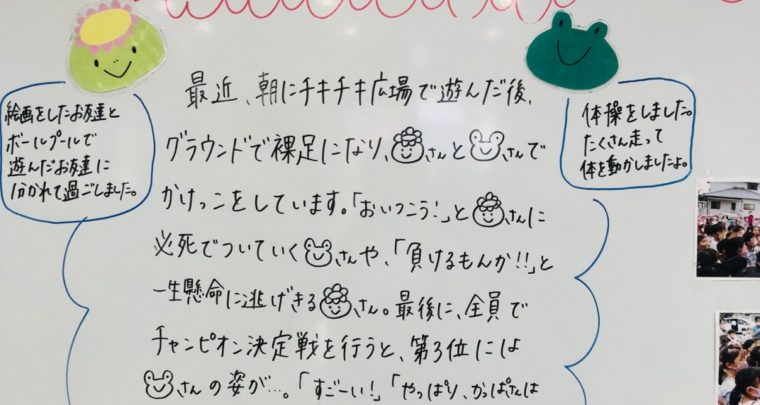 絵画をしたお友達と
ボールプールで
遊んだお友達に
分かれて過ごしました。
体操をしました。
たくさん走って
体を動かしましたよ。
最近、朝にチキチキ広場で遊んだ後、
グラウンドで裸足になり、さんとさんで
かけっこをしています。「おいつこう!」とさんに
必死でついていくさんや、「負けるもんか!!」と
一生懸命に逃げきるさん。最後に、全員で
チャンピオン決定戦を行うと、第3位には
さんの姿が…。「すごーい!」「やっぱり、かっぱさんは